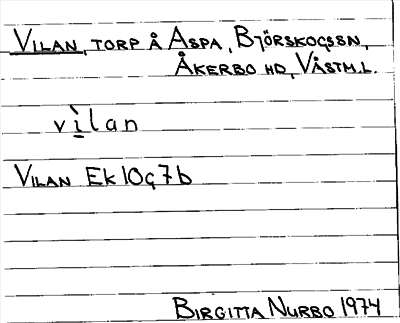 VILAN, TORP Å ASPA, BJÖRSKOGSSN,
ÅKERBO HD, VÄSTM.L.
vı̱̀lan
VILAN EK10G7b
BIRGITTA NURBO 1974